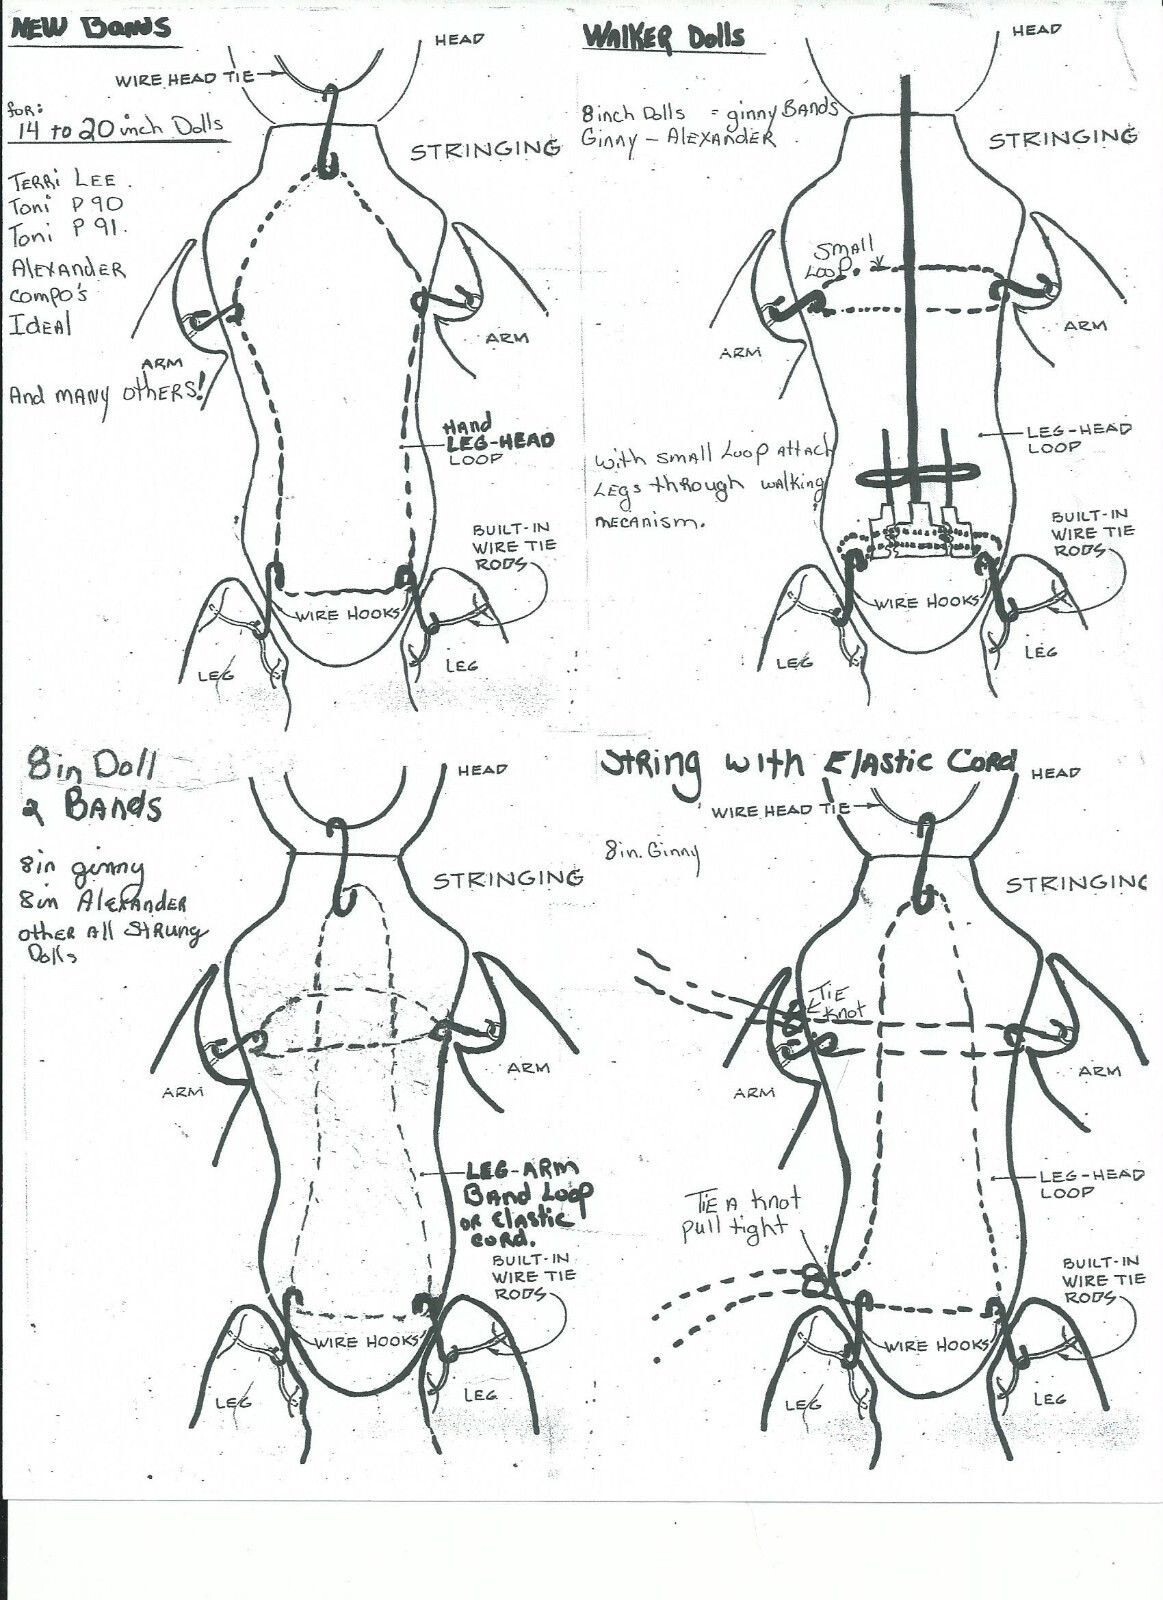 NEW Bands
HEAD
WIRE HEAD TIE
for:
14 to 20 inch Dolls
STRINGING
TERRi LEE.
Toni P 90
Toni P 91.
ALEXANDER
compo's
IDEAl
And MANY OTHERS!
ARM
ARM
Hand
LEG-HEAD
LOOP
BUILT-IN
WIRE TIE
RODS
WIRE HOOKS
LEG
LEG
WALKER Dolls
HEAD
8 inch Dolls = ginny BANDS
Ginny - ALEXANDER
STRINGING
SMALL
LOOP.
ARM
ARM
LEG-HEAD
LOOP
with SMALL LOOP ATTACH
LEGS through walking
mecanism.
BUILT-IN
WIRE TIE
RODS
WIRE HOOKS
LEG
LEG
8in Doll
2 BANDS
HEAD
8in ginny
8in Alexander
other All Strung
Dolls
STRINGING
ARM
ARM
LEG-ARM
BAND LOOP
OR ElAStic
CORD.
BUILT-IN
WIRE TIE
RODS
WIRE HOOKS
LEG
LEG
String with Elastic Cord
HEAD
WIRE HEAD TIE
8in. Ginny
STRINGING
TIE
Knot
ARM
ARM
LEG-HEAD
LOOP
TIE A knot
pull tight
BUILT-IN
WIRE TIE
RODS
WIRE HOOKS
LEG
LEG